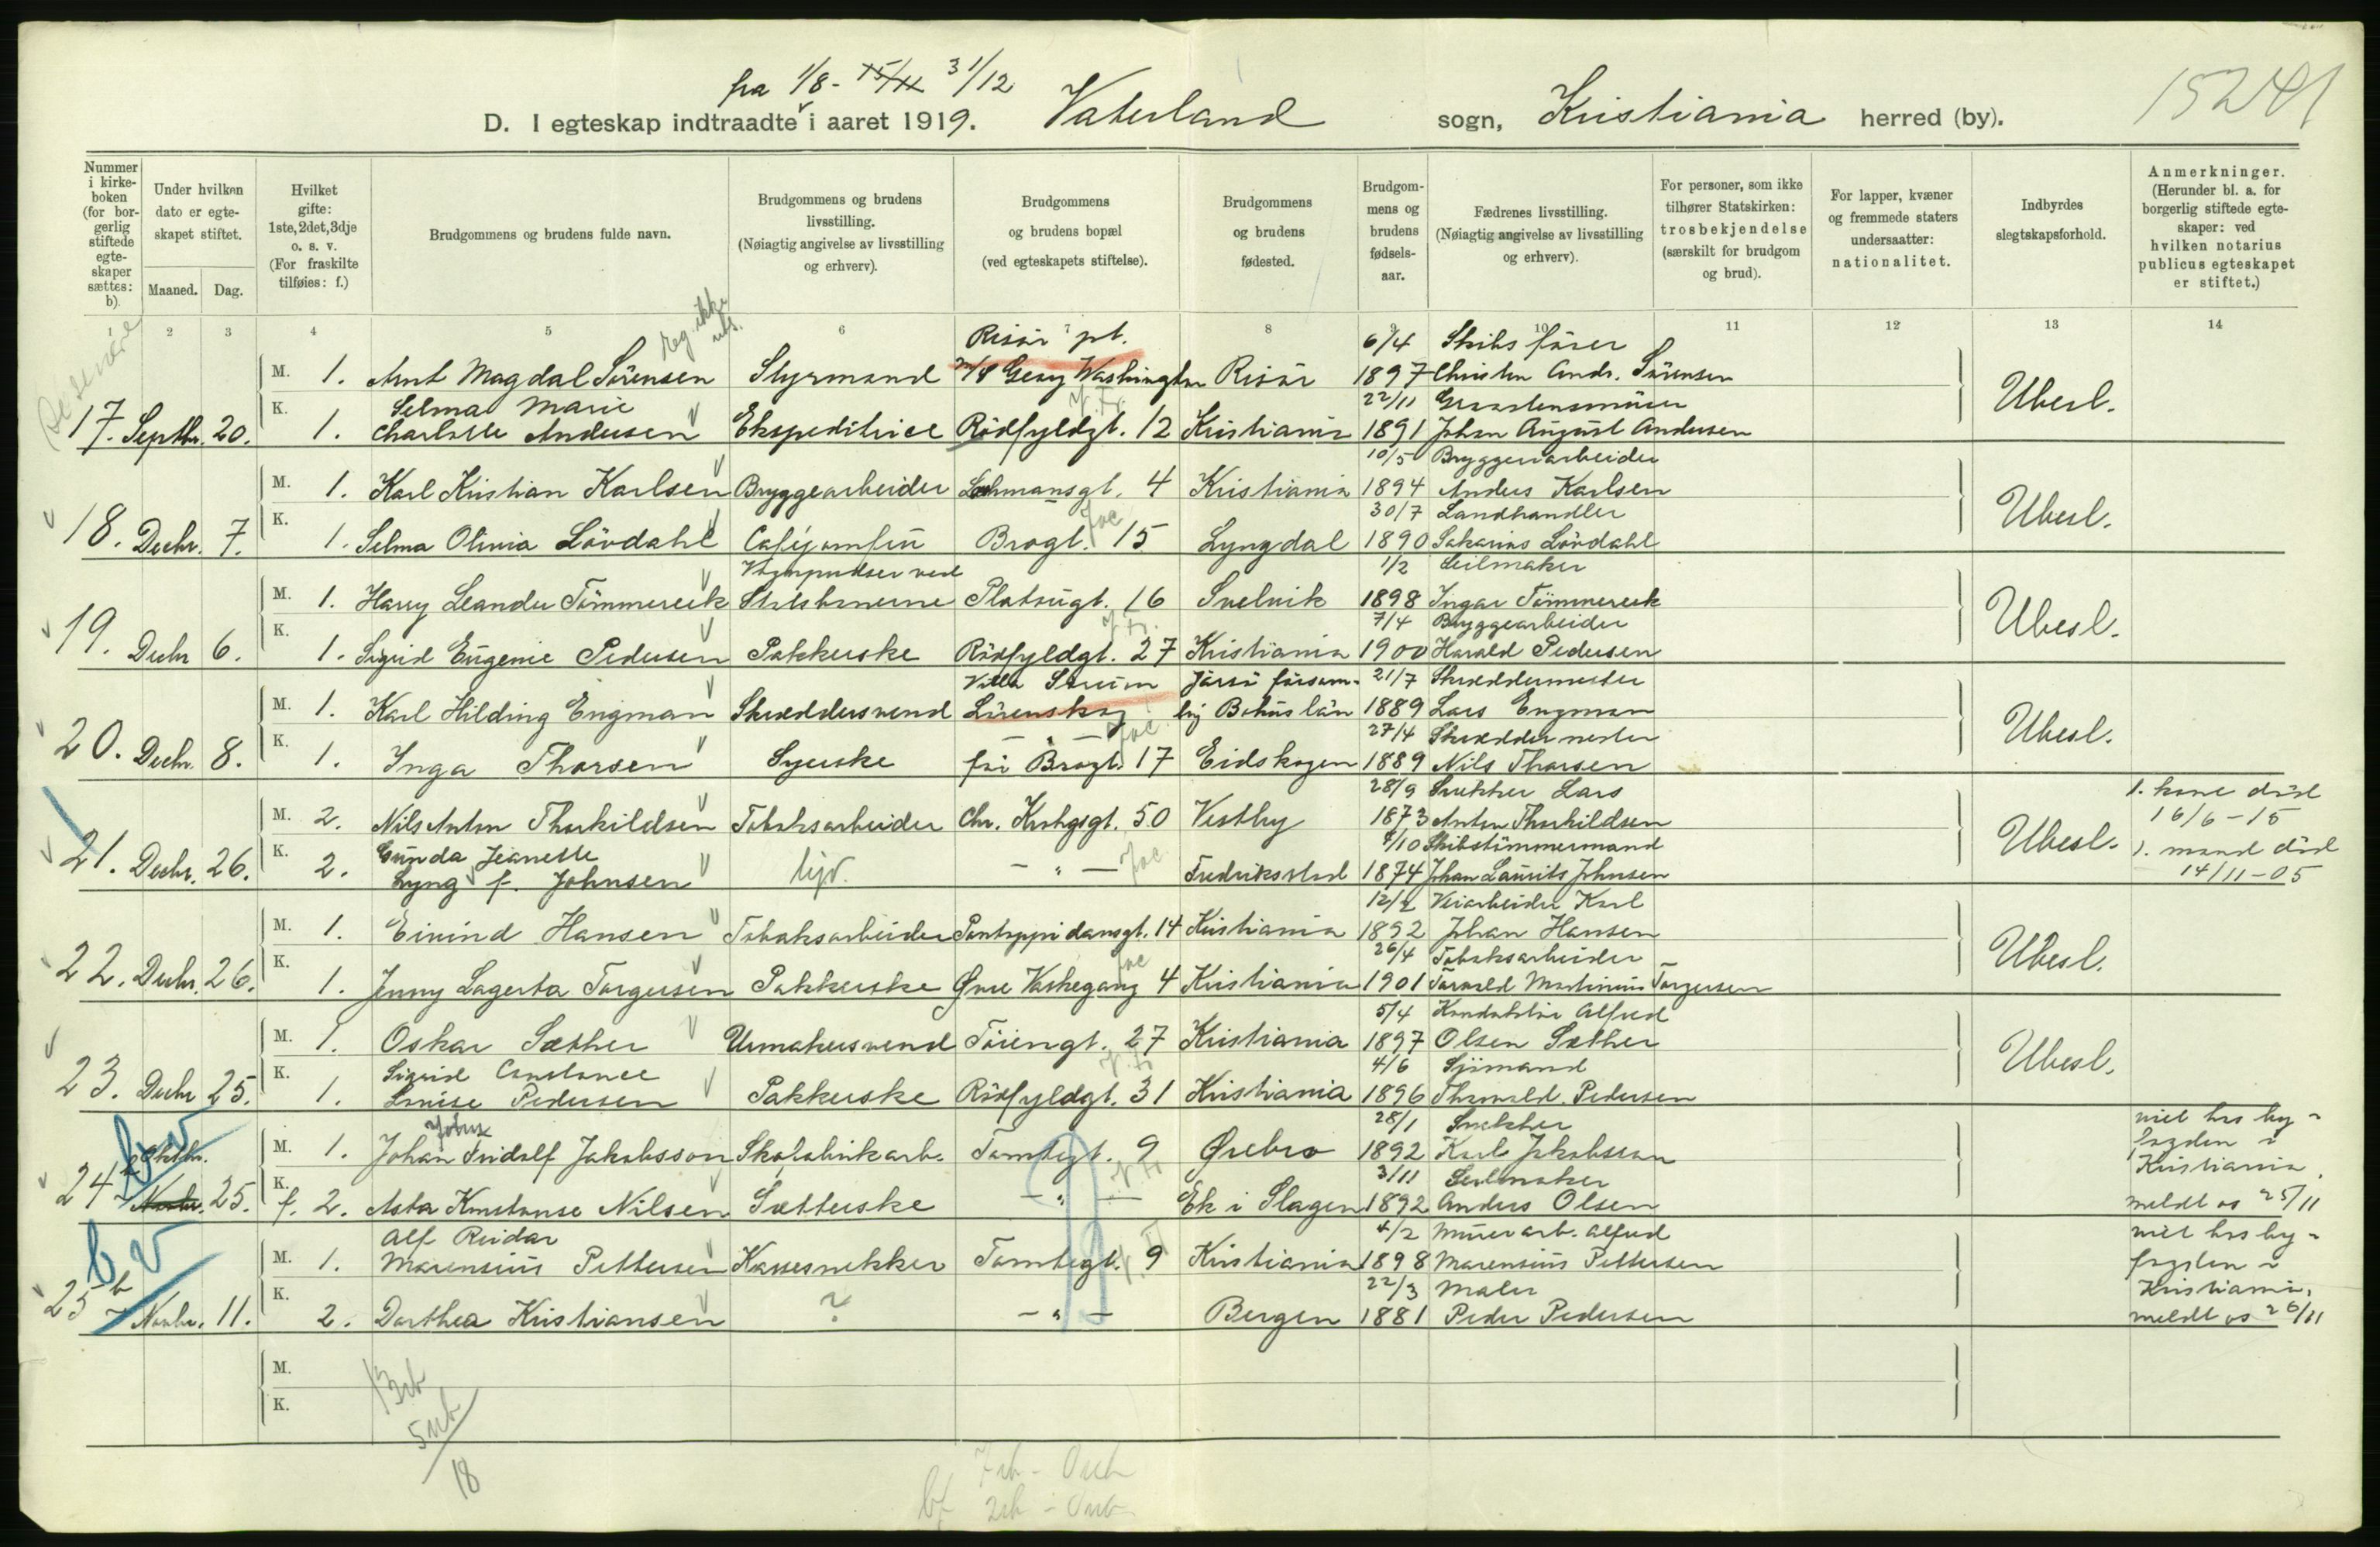 fra 1/8 - 15/11 31/12
D. I egteskap indtraadte i aaret 1919. Vaterland sogn, Kristiania herred (by).
1524
Nummer i kirkeboken (for borgerlig stiftede egteskaper sættes: b).
Under hvilken dato er egteskapet stiftet.
Maaned. Dag.
Hvilket gifte: 1ste, 2det, 3dje o. s. v. (For fraskilte tilføies: f.)
Brudgommens og brudens fulde navn.
Brudgommens og brudens livsstilling. (Nøiagtig angivelse av livsstilling og erhverv).
Brudgommens og brudens bopæl (ved egteskapets stiftelse).
Brudgommens og brudens fødested.
Brudgommens og brudens fødselsaar.
Fædrenes livsstilling. (Nøiagtig angivelse av livsstilling og erhverv).
For personer, som ikke tilhører Statskirken: trosbekjendelse (særskilt for brudgom og brud).
For lapper, kvæner og fremmede staters undersaatter: nationalitet.
Indbyrdes slegtskapsforhold.
Anmerkninger. (Herunder bl. a. for borgerlig stiftede egteskaper: ved hvilken notarius publicus egteskapet er stiftet.)
1 2 3 4 5 6 7 8 9 10 11 12 13 14
Risør pt. 6/4 Skibsfører
M. 1. Arnt Magdal Sörensen Styrmand Georg Washington Risör 1897 Christen Andr. Sörensen
Selma Marie 22/11
17. Septbr. 20. K. 1. Charlotte Andersen Ekspeditrice Rödfyldgt. 12 Kristiania 1891 Johan August Andersen Ubesl.
10/5 Bryggeriarbeider
M. 1. Karl Kristian Karlsen Bryggearbeider Lakmansgt. 4 Kristiania 1894 Anders Karlsen
30/7 Landhandler
18. Decbr. 7. K. 1. Selma Olivia Lövdahl Caféjomfru Brogt. 15 Lyngdal 1890 Sakarias Lövdahl Ubesl.
Vognpudser ved 1/2 Seilmaker
M. 1. Harry Leander Tömmereek Statsbanerne Platousgt. 16 Svelvik 1898 Ingar Tömmereek
7/4 Bryggearbeider
19. Decbr 6. K. 1. Sigrid Eugenie Pedersen Pakkerske Rödfyldgt. 27 Kristiania 1900 Harald Pedersen Ubesl.
Villa Sörum 21/7 Skreddermester
M. 1. Karl Hilding Engman Skreddersvend Lörenskog Bohuslän 1889 Lars Engman
27/4 Skreddermester
20. Decbr. 8. K. 1. Inga Thorsen Syerske för Brogt. 17 Eidskogen 1889 Nils Thorsen Ubesl.
28/9 Snekker Lars 1. kone död
M. 2. Nils Anton Thorkildsen Tobaksarbeider Chr. Krohgsgt. 50 Vestby 1873 Anton Thorkildsen 16/6-15
Gunda Jeanette 4/10 Skibstömmermand 1. mand död
21. Decbr. 26. K. 2. Lyng f. Johnsen -"- Fredriksstad 1874 Johan Laurits Johnsen Ubesl. 14/11-05
12/2 Veiarbeider Karl
M. 1. Eivind Hansen Tobaksarbeider Pontoppidansgt. 14 Kristiania 1892 Johan Hansen
26/4 Tobaksarbeider
22. Decbr. 26. K. 1. Jenny Lagerta Torgersen Pakkerske Øvre Vaskegang 4 Kristiania 1901 Torvald Martinius Torgersen Ubesl.
5/4 Konduktör Alfred
M. 1. Oskar Sæther Urmakersvend Töiengt. 27 Kristiania 1897 Olsen Sæther
Sigrid Constance 4/6 Sjömand
23. Decbr 25. K. 1. Lovise Pedersen Pakkerske Rödfyldgt. 31 Kristiania 1896 Thorvald Pedersen Ubesl.
28/1 Snekker viet hos by-
Oktbr. M. 1. Johan Fridolf Jakobsson Skofabrikarb. Tomtegt. 9 Ørebro 1892 Karl Jakobsson fogden i
3/11 Seilmaker Kristiania,
24 b Novbr. 25. K. f. 2. Asta Konstanse Nilsen Sætterske -"- Ek i Slagen 1892 Anders Olsen meldt os 25/11
Alf Reidar 4/2 Murerarb. Alfred viet hos by-
M. 1. Marensius Pettersen Kassesnekker Tomtegt. 9 Kristiania 1898 Marensius Pettersen fogden i
22/3 Maler Kristiania,
25 b Novbr. 11. K. 2. Dorthea Kristiansen ? -"- Bergen 1881 Peder Pedersen meldt os 26/11
M.
K.
18